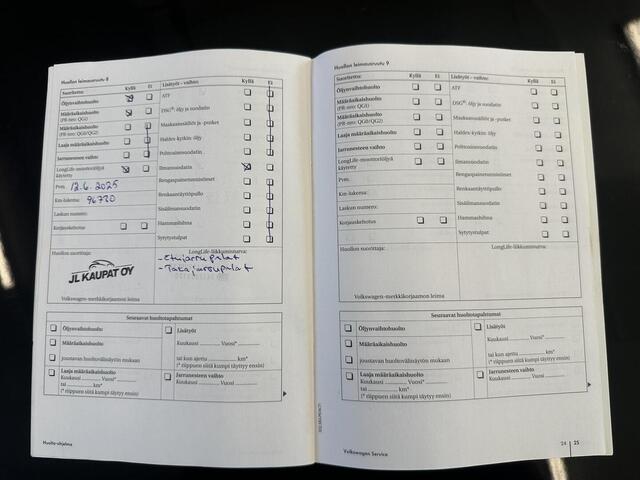 Huollon leimausruutu 8
Suoritettu: Kyllä Ei
Öljynvaihtohuolto
Määräaikaishuolto
(PR-nro: QG1)
Määräaikaishuolto
(PR-nro: QG0/QG2)
Laaja määräaikaishuolto
Jarrunesteen vaihto
LongLife-moottoriöljyä
käytetty
Pvm. 12.6.2025
Km-lukema: 96720
Laskun numero:
Korjauskehotus
Lisätyöt - vaihto: Kyllä Ei
ATF
DSG®: öljy ja suodatin
Maakaasusäiliöt ja -putket
Haldex-kytkin: öljy
Polttoainesuodatin
Ilmansuodatin
Rengaspainetunnistimet
Renkaantäyttöpullo
Sisäilmansuodatin
Hammashihna
Sytytystulpat
Huollon suorittaja:
JL KAUPAT OY
LongLife-liikkumisturva:
- Etujarrupalat
- Takajarrupalat
Volkswagen-merkkikorjaamon leima
Seuraavat huoltotapahtumat
Öljynvaihtohuolto
Määräaikaishuolto
joustavan huoltovälinäytön mukaan
Laaja määräaikaishuolto
Kuukausi ............ Vuosi* ............
tai ............ km*
(* riippuen siitä kumpi täyttyy ensin)
Lisätyöt
Kuukausi ............ Vuosi* ............
tai kun ajettu ............ km*
(* riippuen siitä kumpi täyttyy ensin)
Jarrunesteen vaihto
Kuukausi ............ Vuosi ............
Huolto-ohjelma
Huollon leimausruutu 9
Suoritettu: Kyllä Ei
Öljynvaihtohuolto
Määräaikaishuolto
(PR-nro: QG1)
Määräaikaishuolto
(PR-nro: QG0/QG2)
Laaja määräaikaishuolto
Jarrunesteen vaihto
LongLife-moottoriöljyä
käytetty
Pvm.
Km-lukema:
Laskun numero:
Korjauskehotus
Lisätyöt - vaihto: Kyllä Ei
ATF
DSG®: öljy ja suodatin
Maakaasusäiliöt ja -putket
Haldex-kytkin: öljy
Polttoainesuodatin
Ilmansuodatin
Rengaspainetunnistimet
Renkaantäyttöpullo
Sisäilmansuodatin
Hammashihna
Sytytystulpat
Huollon suorittaja:
LongLife-liikkumisturva:
Volkswagen-merkkikorjaamon leima
Seuraavat huoltotapahtumat
Öljynvaihtohuolto
Määräaikaishuolto
joustavan huoltovälinäytön mukaan
Laaja määräaikaishuolto
Kuukausi ............ Vuosi* ............
tai ............ km*
(* riippuen siitä kumpi täyttyy ensin)
Lisätyöt
Kuukausi ............ Vuosi* ............
tai kun ajettu ............ km*
(* riippuen siitä kumpi täyttyy ensin)
Jarrunesteen vaihto
Kuukausi ............ Vuosi ............
Volkswagen Service
24 25